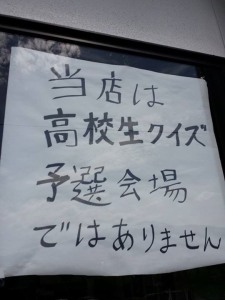 当店は
高校生クイズ
予選会場
ではありません